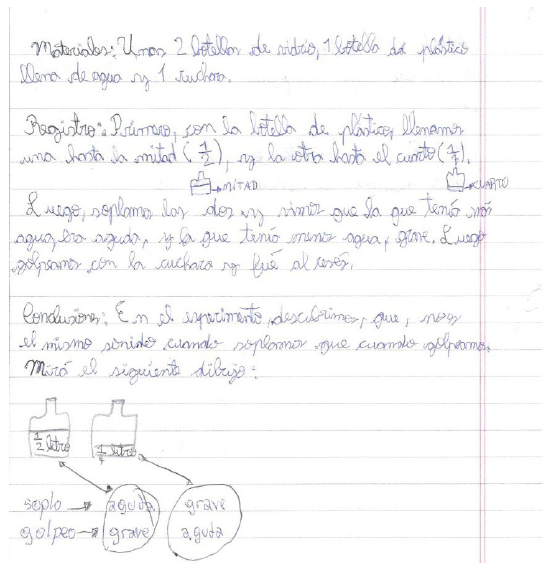 Materiales: Unas 2 botellas de vidrio, 1 botella de plástico
llena de agua y 1 cuchara.
Registro: Primero, con la botella de plástico, llenamos
una hasta la mitad (1/2), y la otra hasta el cuarto (1/4).
→MITAD →CUARTO
Luego, soplamos las dos y vimos que la que tenía más
agua, era aguda, y la que tenía menos agua, grave. Luego
golpeamos con la cuchara y fué al revés.
Conclusiones: En el experimento, descubrimos, que, no es
el mismo sonido cuando soplamos que cuando golpeamos.
Mirá el siguiente dibujo:
1/2 litro 1/4 litro
soplo → aguda grave
golpeo → grave aguda